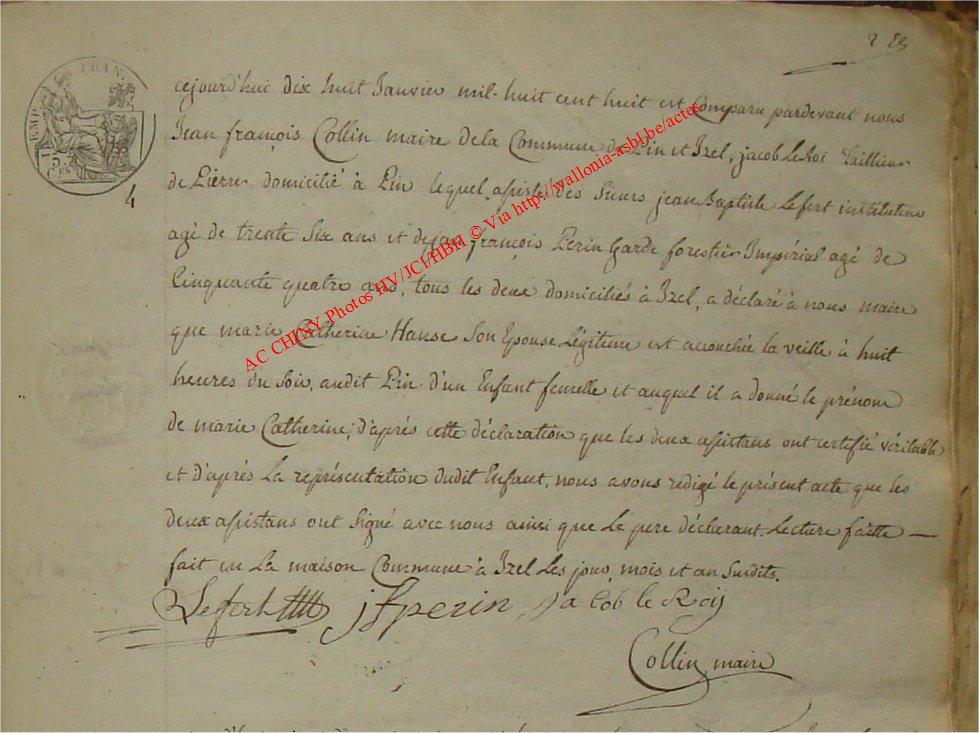 cejourd'hui dix huit Janvier mil-huit cent huit est Comparu pardevant nous
Jean françois Collin maire de la Commune de Pin et Izel, jacob Le Roi tailleur
de Pierre domicilié à Pin lequel assisté des Sieurs jean Baptiste Lefert instituteur
agé de trente Six ans et de jean françois Perin Garde forestier Impérial agé de
Cinquante quatre ans, tous les deux domiciliés à Izel, a déclaré à nous maire
que marie Catherine Hanse Son Epouse Légitime est accouchée la veille à huit
heures du Soir, audit Pin d'un Enfant femelle et auquel il a donné le prénom
de marie Catherine; d'après cette déclaration que les deux assistans ont certifié véritable
et d'après La représentation dudit Enfant, nous avons rédigé le présent acte que les
deux assistans ont Signé avec nous ainsi que Le pere déclarant. Lecture faitte
fait en La maison Commune à Izel Les jour, mois et an Susdits.
Lefert jfperin jacob le Roij
Collin maire
EMP. FRAN.
4
AC CHINY Photos HV/JCI/HBH © Via http://wallonia-asbl.be/actes